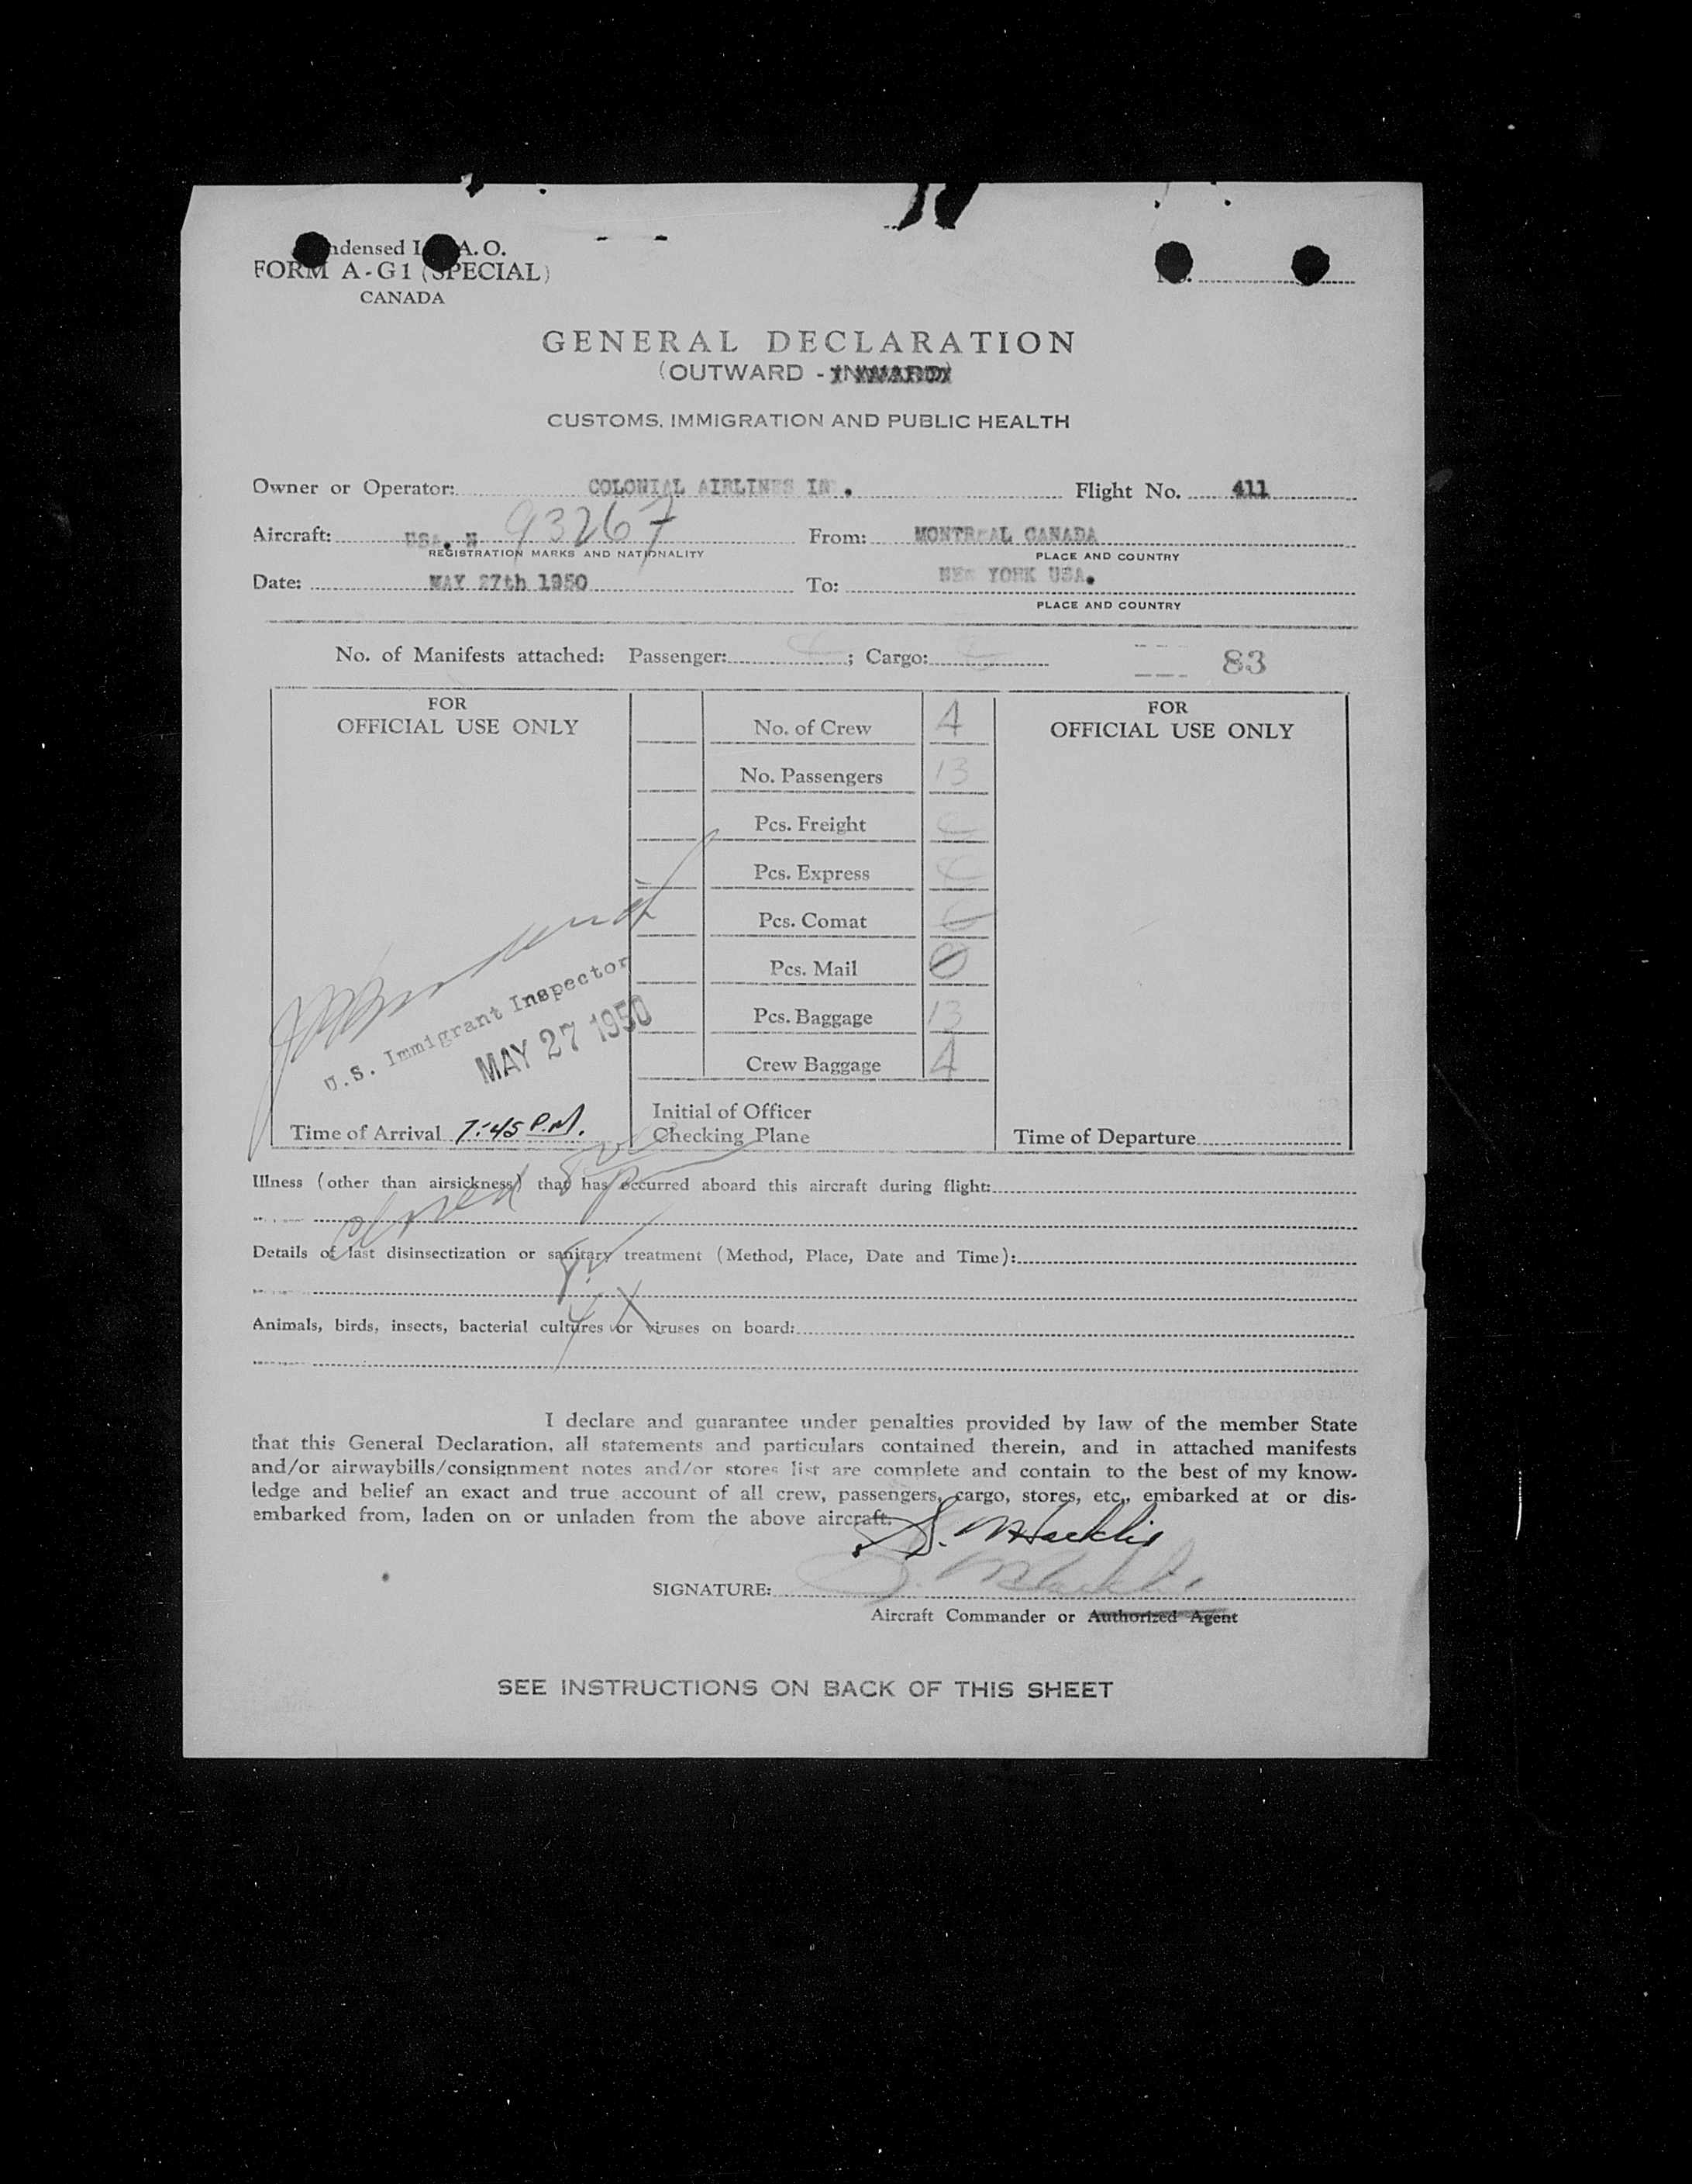 ndensed I A. O.
FORM A-G1 (SPECIAL)
CANADA
GENERAL DECLARATION
(OUTWARD - INWARD)
CUSTOMS, IMMIGRATION AND PUBLIC HEALTH
Owner or Operator: COLONIAL AIRLINES IN . Flight No. 411
Aircraft: USA. N 93267 From: MONTREAL CANADA
REGISTRATION MARKS AND NATIONALITY PLACE AND COUNTRY
Date: MAY 27th 1950 To: NEW YORK USA.
PLACE AND COUNTRY
No. of Manifests attached: Passenger: ; Cargo: 83
FOR
OFFICIAL USE ONLY
No. of Crew 4
No. Passengers 13
Pcs. Freight
Pcs. Express
Pcs. Comat
Pcs. Mail 0
Pcs. Baggage 13
Crew Baggage 4
Initial of Officer
Checking Plane
FOR
OFFICIAL USE ONLY
U.S. Immigrant Inspector
MAY 27 1950
Time of Arrival 7:45 P.M.
Time of Departure
Illness (other than airsickness) that has occurred aboard this aircraft during flight:
Details of last disinsectization or sanitary treatment (Method, Place, Date and Time):
Animals, birds, insects, bacterial cultures or viruses on board:
I declare and guarantee under penalties provided by law of the member State
that this General Declaration, all statements and particulars contained therein, and in attached manifests
and/or airwaybills/consignment notes and/or stores list are complete and contain to the best of my know-
ledge and belief an exact and true account of all crew, passengers, cargo, stores, etc., embarked at or dis-
embarked from, laden on or unladen from the above aircraft.
SIGNATURE:
Aircraft Commander or Authorized Agent
SEE INSTRUCTIONS ON BACK OF THIS SHEET